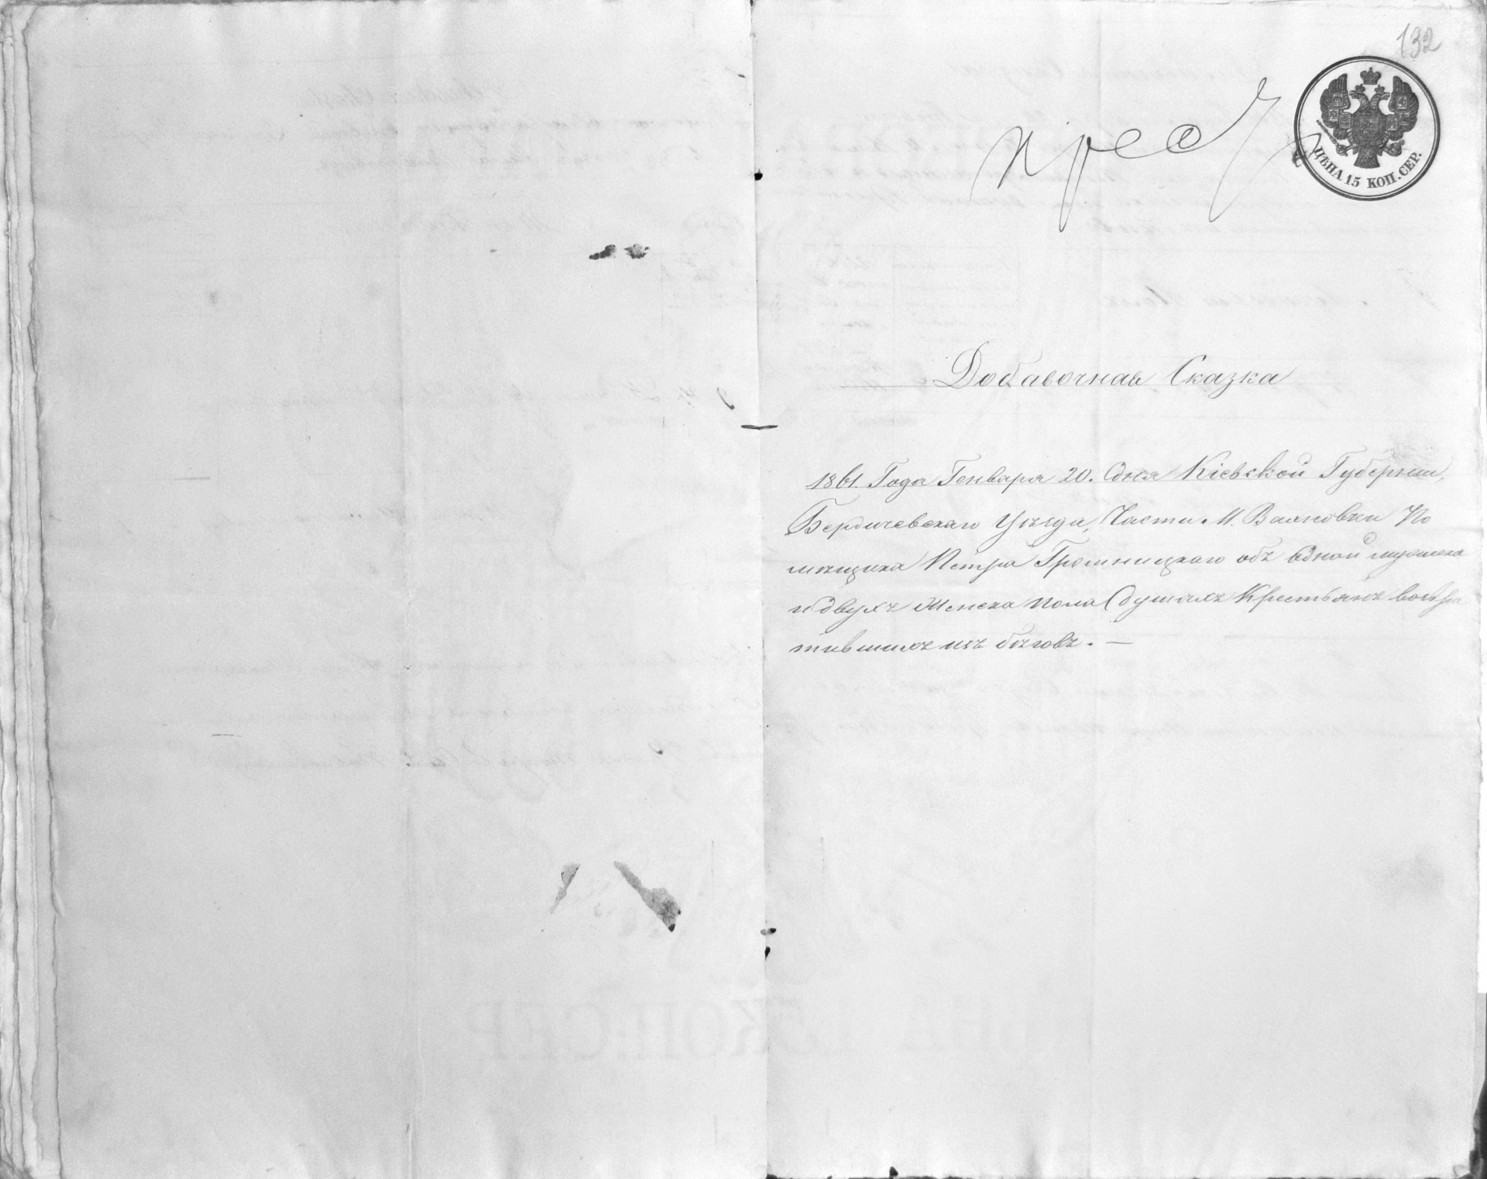 132
ЦѢНА 15 КОП. СЕР.
Добавочная Сказка
1861. Года Генваря 20. дня Кіевской Губерніи,
Бердичевскаго Уѣзда, Части М. Вахновки По
мѣщика Петра Громиницкаго объ одной мужеска
и двухъ Женска пола душахъ Крестьянъ возвра
тившихся изъ бѣговъ. —